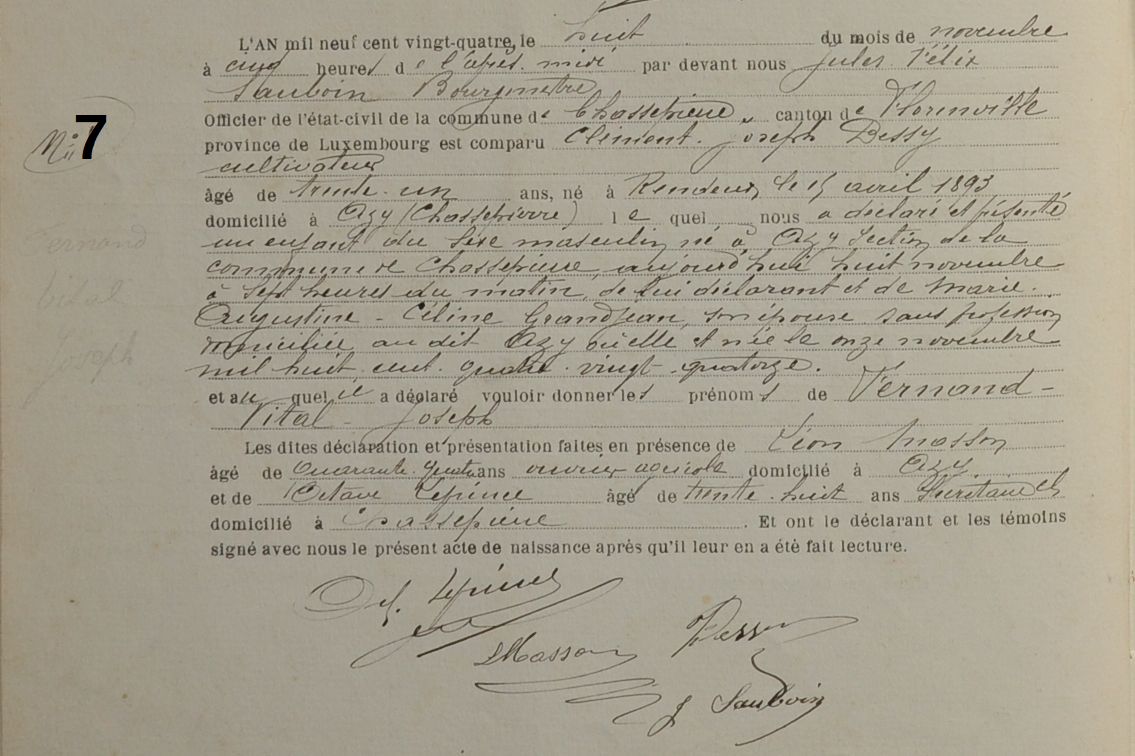 L'AN mil neuf cent vingt-quatre, le huit du mois de novembre
à cinq heures de l'après-midi par devant nous Jules Félix
Sauboin Bourgmestre
Officier de l'état-civil de la commune de Chassepierre, canton de Florenville
province de Luxembourg est comparu Clément-Joseph Dessy
cultivateur
âgé de trente-un ans, né à Rendeux, le 15 avril 1893
domicilié à Azy (Chassepierre) lequel nous a déclaré et présenté
un enfant du sexe masculin, né à Azy section de la
commune de Chassepierre, aujourd'hui huit novembre
à sept heures du matin, de lui déclarant et de Marie-
Augustine-Céline Grandjean, son épouse sans profession
domiciliée au dit Azy où elle est née le onze novembre
mil huit cent quatre-vingt-quatorze.
et auquel il a déclaré vouloir donner les prénoms de Fernand-
Vital-Joseph
Les dites déclaration et présentation faites en présence de Léon Masson
âgé de quarante-quatre ans ouvrier agricole domicilié à Azy
et de Octave Lépine âgé de trente-huit ans Secrétaire
domicilié à Chassepierre. Et ont le déclarant et les témoins
signé avec nous le présent acte de naissance après qu'il leur en a été fait lecture.
7
Fernand
Vital
Joseph
Masson
Dessy
J Sauboin